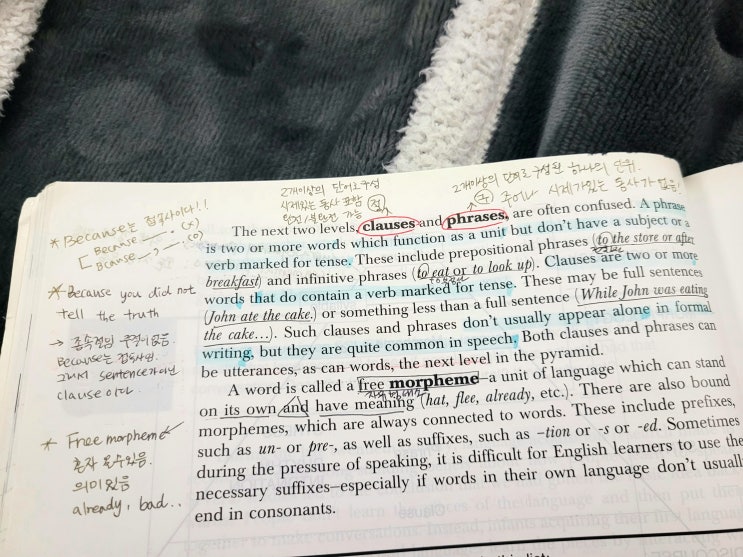 2개이상의 단어로 구성
시제있는 동사 포함 절
완전/불완전 가능
2개이상의 단어로 구성된 하나의 단위.
구 주어나 시제가있는 동사가 없음!
The next two levels, clauses and phrases, are often confused. A phrase
is two or more words which function as a unit but don't have a subject or a
verb marked for tense. These include prepositional phrases (to the store or after
breakfast) and infinitive phrases (to eat or to look up). Clauses are two or more
words that do contain a verb marked for tense. These may be full sentences
(John ate the cake.) or something less than a full sentence (While John was eating
the cake…). Such clauses and phrases don't usually appear alone in formal
writing, but they are quite common in speech. Both clauses and phrases can
be utterances, as can words, the next level in the pyramid.
A word is called a free morpheme–a unit of language which can stand
on its own and have meaning (hat, flee, already, etc.). There are also bound
morphemes, which are always connected to words. These include prefixes,
such as un- or pre-, as well as suffixes, such as –tion or -s or -ed. Sometimes
during the pressure of speaking, it is difficult for English learners to use the
necessary suffixes–especially if words in their own language don't usuall
end in consonants.
* Because는 접속사이다!!
Because . (X)
Because , . (O)
* Because you did not
tell the truth
→ 종속절의 주절이 없음.
Because는 접속사임.
그래서 sentence가 아닌
clause이다.
* Free morpheme
혼자 올수있음.
의미있음
already, bad..